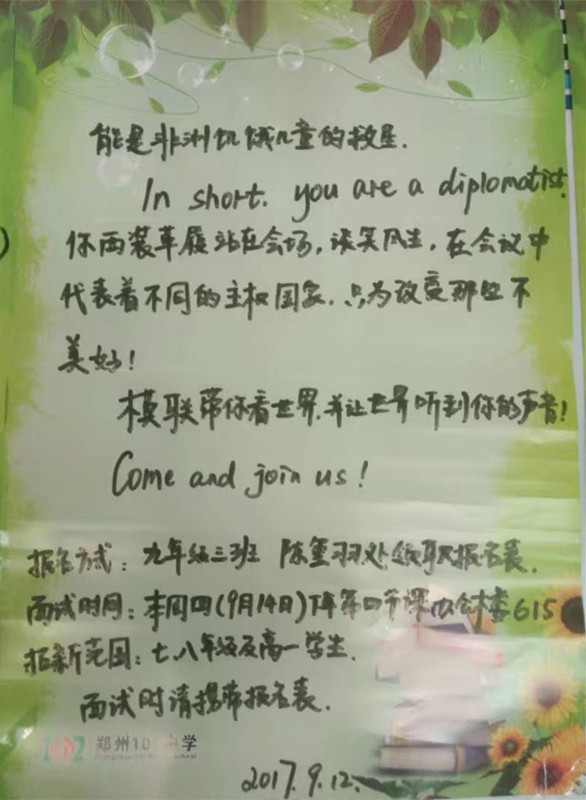 能是非洲饥饿儿童的救星.
In short. you are a diplomatist.
你西装革履站在会场,谈笑风生,在会议中
代表着不同的主权国家.只为改变那些不
美好!
模联带你看世界.并让世界听到你的声音!
Come and join us!
报名方式:九年级三班 陈 羽处领取报名表.
面试时间:本周四(9月14日)下午第四节课办公楼615
招新范围:七.八年级及高一学生.
面试时请携带报名表.
郑州10 中学
2017.9.12.